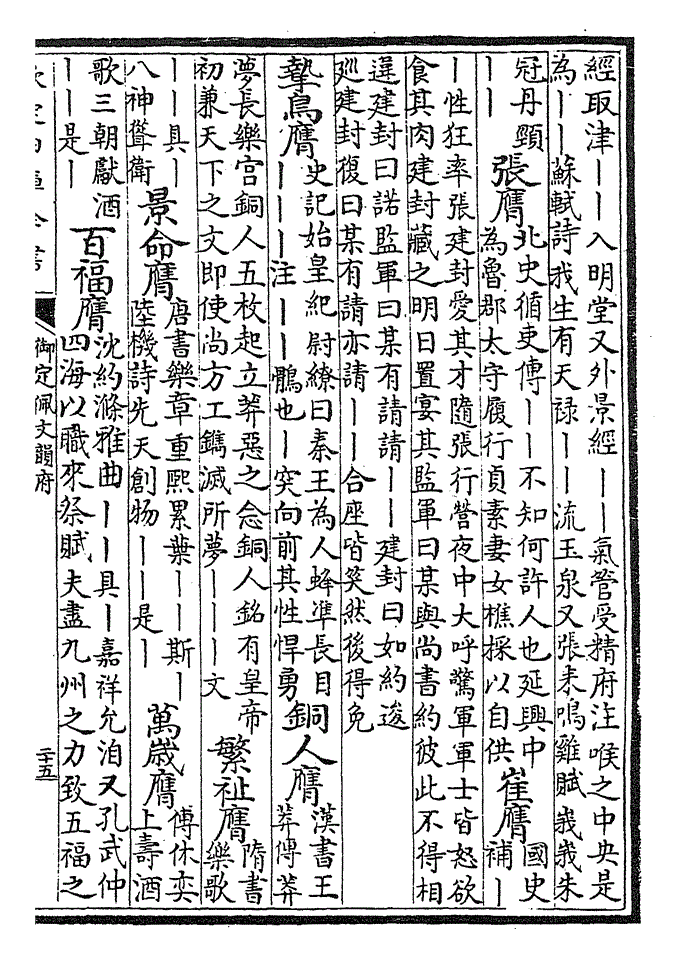 經取津丨丨入明堂又外景經丨丨氣管受精府注喉之中央是
為丨丨蘇軾詩我生有天禄丨丨流玉泉又張耒鳴雞賦峩峩朱
冠丹頸
丨丨
張膺
北史循吏傳丨丨不知何許人也延興中
為魯郡太守履行貞素妻女樵採以自供
崔膺
國史
補丨
丨性狂率張建封愛其才隨張行營夜中大呼驚軍軍士皆怒欲
食其肉建封藏之明日置宴其監軍曰某與尚書約彼此不得相
違建封曰諾監軍曰某有請請丨丨建封曰如約逡
廵建封復曰某有請亦請丨丨合座皆笑然後得免
摯鳥膺
史記始皇紀尉繚曰秦王為人蜂準長目
丨丨丨注丨丨鶻也丨突向前其性悍勇
銅人膺
漢書王
莽傳莽
夢長樂宫銅人五枚起立莽惡之念銅人銘有皇帝
初兼天下之文即使尚方工鐫滅所夢丨丨丨文
繁祉膺
隋書
樂歌
丨丨具丨
八神聳衛
景命膺
唐書樂章重熙累葉丨丨斯丨
陸機詩先天創物丨丨是丨
萬歲膺
傅休奕
上壽酒
歌三朝獻酒
丨丨是丨
百福膺
沈約滌雅曲丨丨具丨嘉祥允洎又孔武仲
四海以職來祭賦夫盡九州之力致五福之
欽定四庫全書
御定佩文韻府
二十五